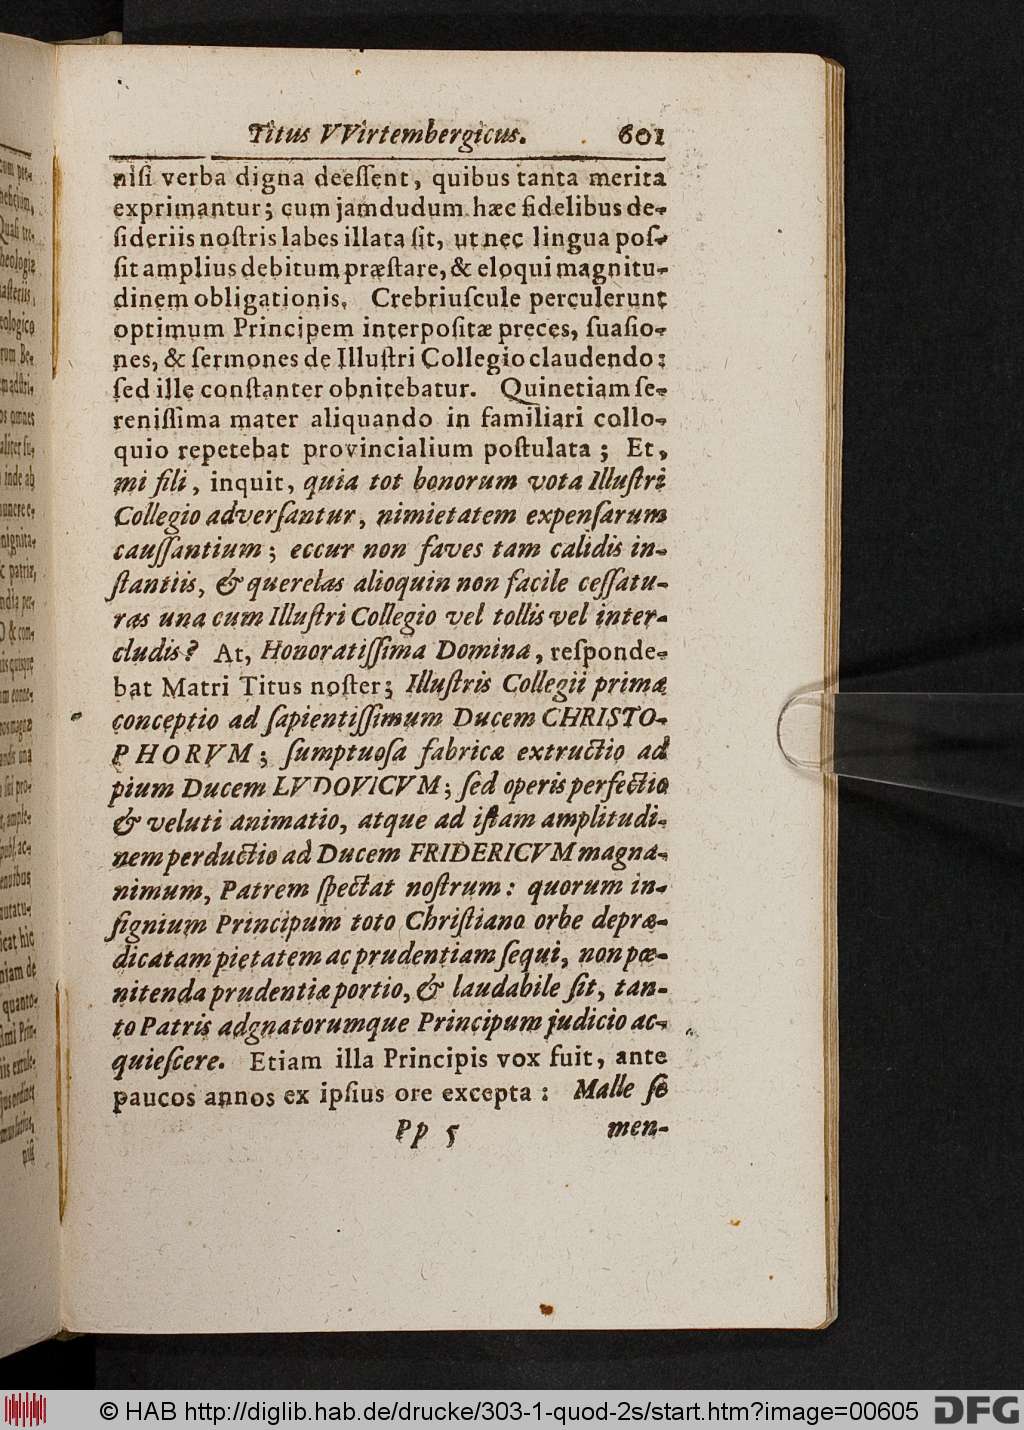 Titus VVirtembergicus. 601
niſi verba digna deeſſent, quibus tanta merita
exprimantur; cum jamdudum hæc fidelibus de-
ſideriis noſtris labes illata ſit, ut nec lingua poſ-
ſit amplius debitum præſtare, & eloqui magnitu-
dinem obligationis. Crebriuſcule perculerunt
optimum Principem interpoſitæ preces, ſuaſio-
nes, & ſermones de Illuſtri Collegio claudendo:
ſed ille conſtanter obnitebatur. Quinetiam ſe-
reniſſima mater aliquando in familiari collo-
quio repetebat provincialium poſtulata; Et,
mi fili, inquit, quia tot bonorum vota Illuſtri
Collegio adverſantur, nimietatem expenſarum
cauſſantium; eccur non faves tam calidis in-
ſtantiis, & querelas alioquin non facile ceſſatu-
ras una cum Illuſtri Collegio vel tollis vel inter-
cludis? At, Honoratiſſima Domina, reſponde-
bat Matri Titus noſter; Illuſtris Collegii primæ
conceptio ad ſapientiſſimum Ducem CHRISTO-
PHORVM; ſumptuoſa fabricæ extructio ad
pium Ducem LVDOVICVM; ſed operis perfectio
& veluti animatio, atque ad iſtam amplitudi-
nem perductio ad Ducem FRIDERICVM magna-
nimum, Patrem ſpectat noſtrum: quorum in-
ſignium Principum toto Chriſtiano orbe depræ-
dicatam pietatem ac prudentiam ſequi, non pœ-
nitenda prudentiæ portio, & laudabile ſit, tan-
to Patris adgnatorumque Principum judicio ac-
quieſcere. Etiam illa Principis vox fuit, ante
paucos annos ex ipſius ore excepta: Malle ſe
Pp 5 men-
© HAB http://diglib.hab.de/drucke/303-1-quod-2s/start.htm?image=00605 DFG